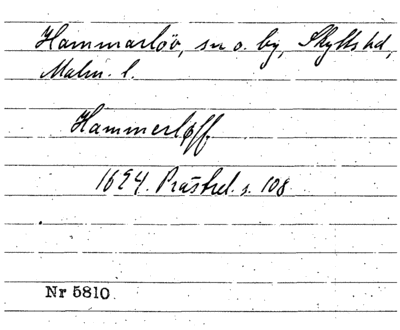 Hammarlöv, sn o. by, Skytts hd,
Malm. l.
Hammerlöff
1694. Prästrel. s. 108
Nr 5810